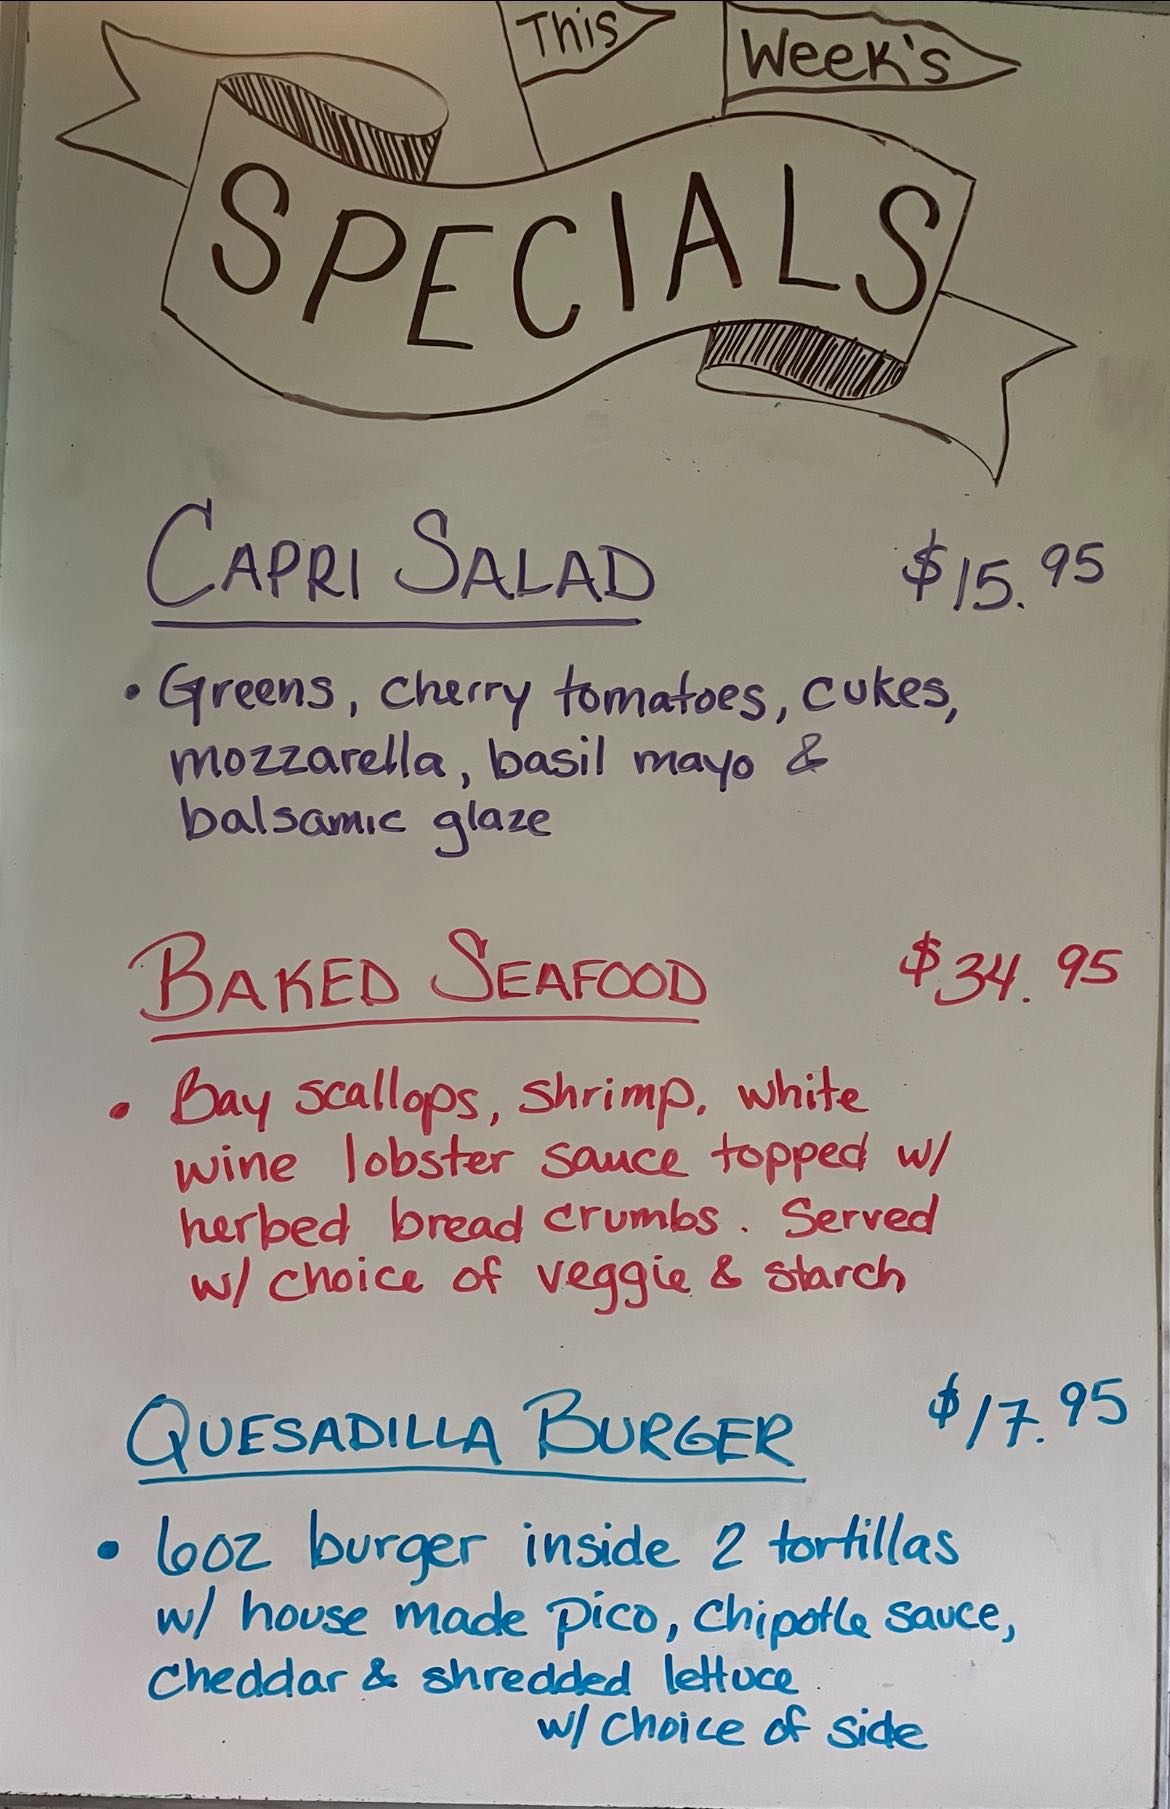 This Week's
SPECIALS
CAPRI SALAD $15.95
• Greens, cherry tomatoes, cukes,
mozzarella, basil mayo &
balsamic glaze
BAKED SEAFOOD $34.95
• Bay scallops, shrimp, white
wine lobster sauce topped w/
herbed bread crumbs. Served
w/ choice of veggie & starch
QUESADILLA BURGER $17.95
• 6oz burger inside 2 tortillas
w/ house made pico, chipotle sauce,
cheddar & shredded lettuce
w/ choice of side